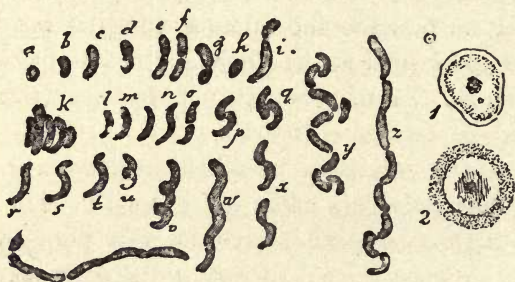 a b c d e f g h i.
k l m n o p q
r s t u v w x y z
1
2